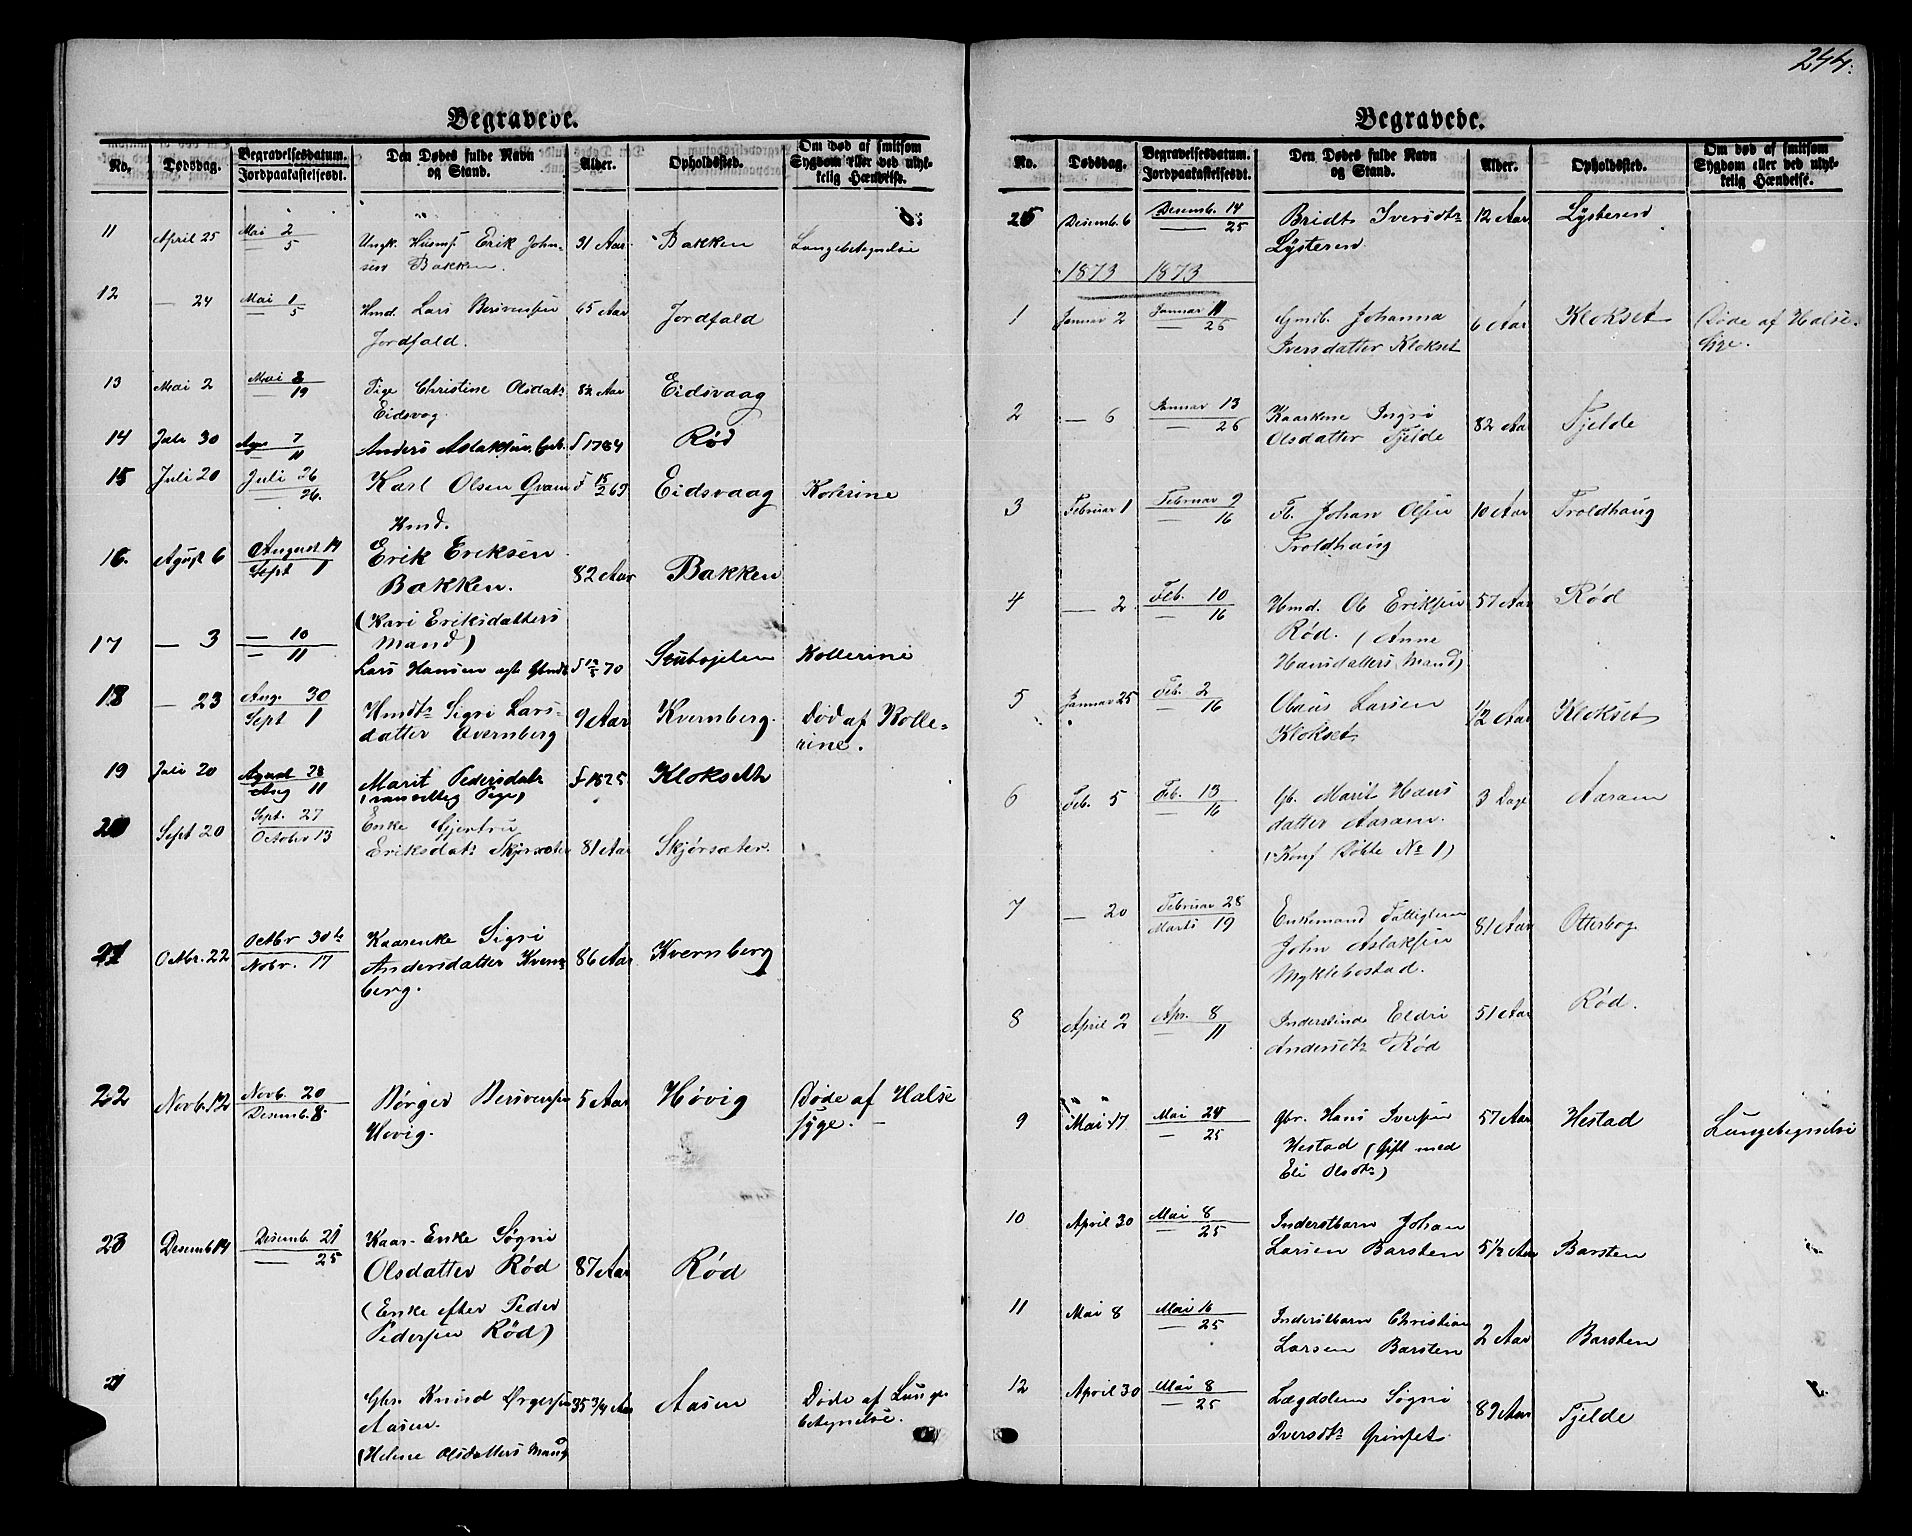 244.
Begravede.
No. Dødsdag. Begravelsesdatum. Jordpaakastelsesdt. Den Dødes fulde Navn og Stand. Alder. Opholdssted. Om død af smitsom Sygdom eller ved ulykkelig Hændelse.
11 April 25 Mai 2 Ungk. Erik John- 31 Aar Bakken Lungebetegnelse
— 5 sen Bakken.
12 — 24 Mai 1 Hmd. Lars 65 Aar Jordfald
— 5 Jordfald.
13 Mai 2 Mai 8 Pige Christine Olsdatr 82 Aar Eidsvaag
— 19 Eidsvog.
14 Juli 30 Agu 7 Anders Aslaksen f 1784 Rød
11
15 Juli 20 Juli 26 Karl Olsen Qvam f 15/2 69 Eidsvaag Kolerine
— 26. Hmd.
16. Agust 6 August 14 Erik Eriksen
Sept 1 Bakken. 82 Aar Bakken
(Kari Eriksdatters
17 — 3 — 10 Mand)
— 11 Lars Hansen 70 Kollerine
18 — 23 Aug. 30 Hmdtr Sigri Lars- 9 Aar Kvernberg. Død af Kolle-
Sept 1 datter Qvernberg rine.
19 Juli 20 Agust 28 Marit Pedersdatr f 1825 Klokseth
Aug 11 (vanvittig Pige)
20 Sept 20 Sept. 27 Enke Gjertru
Octobr 13 Eriksdatr Skjørsæter 81 Aar Skjørsæter.
21 Octbr. 22 Octbr 30te Kaarenke Sigri
Nobr. 17 Andersdatter Kvern- 86 Aar Kvernberg
berg.
22 Novb. 12 Novb. 20 Børger 5 Aar Høvig Døde af Halse
Desemb. 8 Hovig. syge. —
23 Desemb 14 Desemb. 21 Kaar-Enke Søgni
— 25 Olsdatter Rød 87 Aar Rød
(Enke efter Peder
Pedersen Rød)
Gbr. Knud 35 3/4 Aar Aasen Døde af Lunge
Aasen. betegnelse.
(Helene Olsdatters Mand)
Begravede.
No. Dødsdag. Begravelsesdatum. Jordpaakastelsesdt. Den Dødes fulde Navn og Stand. Alder. Opholdssted. Om død af smitsom Sygdom eller ved ulykkelig Hændelse.
25 Desemb 6 Desemb. 14 Bridt Iversdtr 12 Aar Lÿsteren
— 25 Lÿsteren
1873 1873
1 Januar 2 Januar 11 Johanna 6 Aar Klokset Døde af Halse-
— 26 Iversdatter Klokset
2 — 6 Januar 13 Kaarkone Ingri 82 Aar Fjelde
— 26 Olsdatter Fjelde
3 Februar 1 Februar 9 Johan Olsen 10 Aar Troldhaug
— 16 Troldhaug
4 — 2 Feb. 10 Hmd. Ole Eriksen 57 Aar Rød
— 16 Rød. (Anne
Hansdatters Mand)
5 Januar 25 Feb. 2 Olaus Larsen 1/2 Aar Klokset
— 16 Klokset
6 Feb. 5 Feb. 13 Gb. Marit Hans 3 Dage Aaram
— 16 datter Aaram.
(Konf Døbte No 1)
7 — 20 Februar 28 Enkemand Fattiglem 81 Aar Otterbog
Marts 19 John Aslaksen
Myklebostad.
8 April 2 Apr. 8 Inderstinde Eldri 51 Aar Rød.
— 11 Andersdtr Rød
9 Mai 17 Mai 24 Gbr. Hans Iversen 57 Aar Hestad Lungebegnelse
— 25 Hestad (Gift med
Eli Olsdtr)
10 April 30 Mai 8 Inderstbarn Johan
— 25 Larsen Barsten 5 1/2 Aar Barsten
11 Mai 8 Mai 16 Inderstbarn Christian
— 25 Larsen Barsten 2 Aar Barsten
12 April 30 Mai 8 Lægdslem Søgni
— 25 Iversdtr Grinset 89 Aar Fjelde